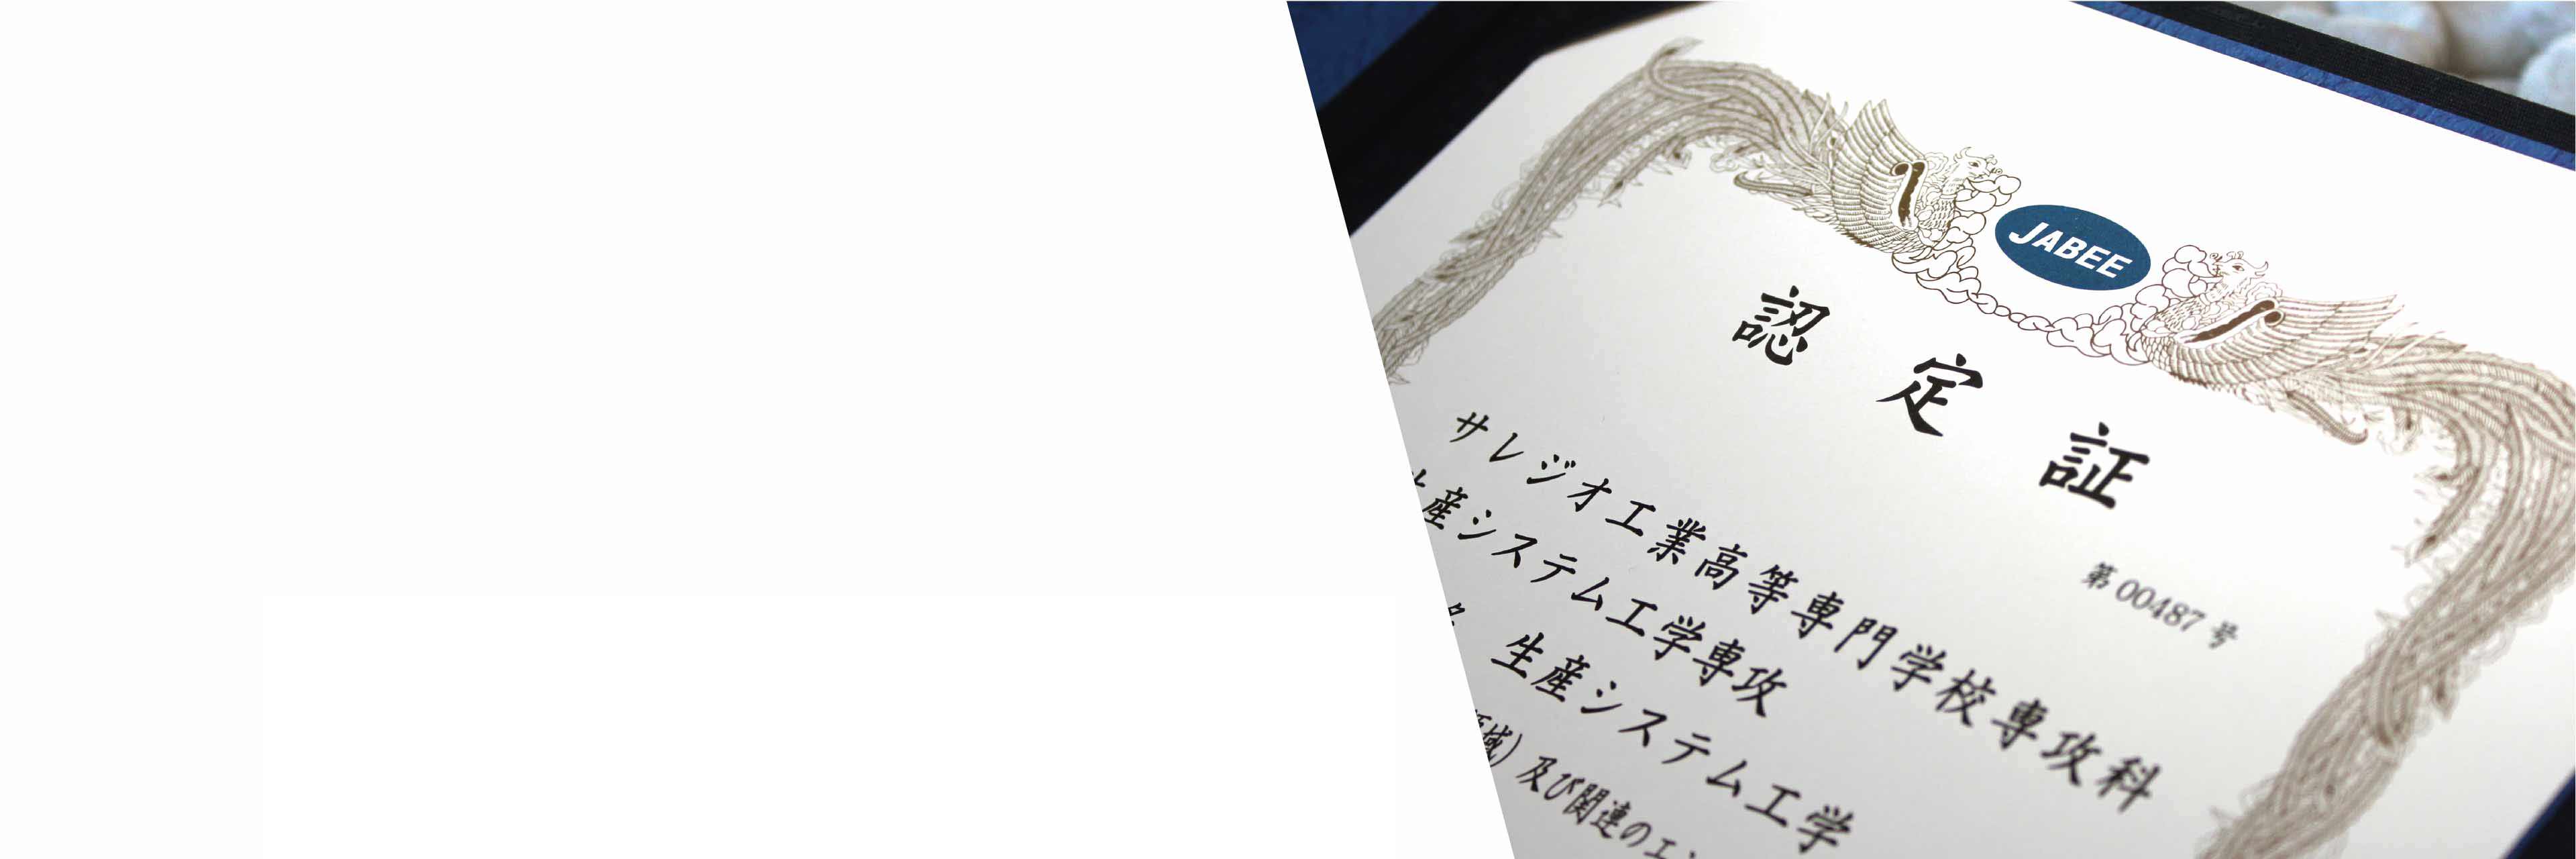 JABEE
認定証
第00487号
サレジオ工業高等専門学校専攻科
産システム工学専攻
生産システム工学
域）及び関連のエン